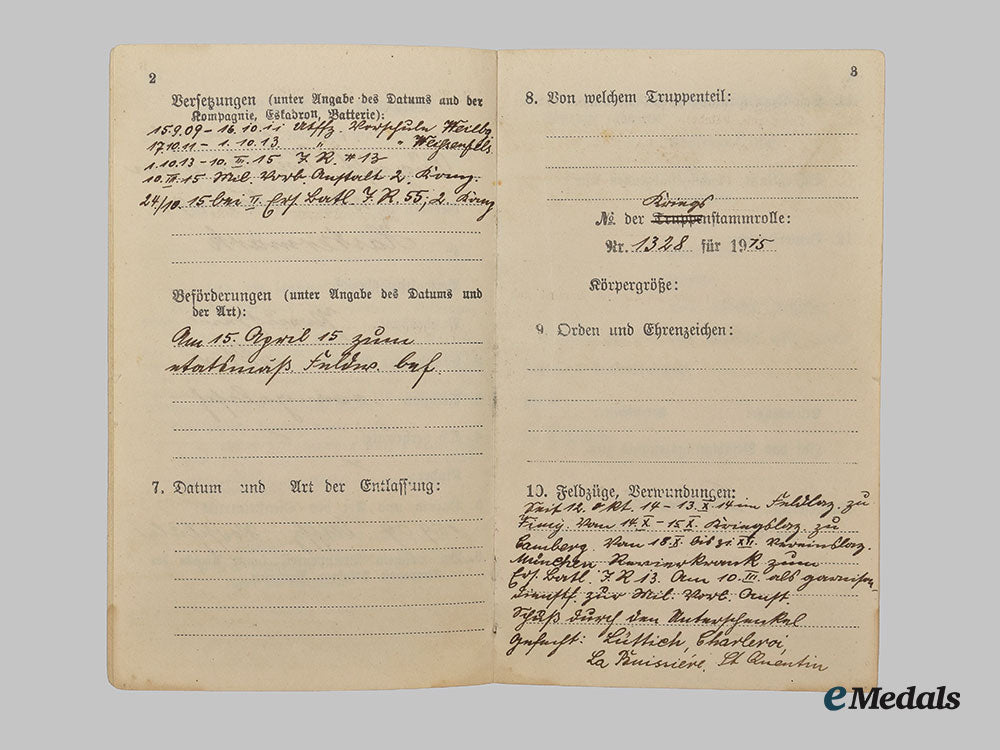 2
Versetzungen (unter Angabe des Datums und der
Kompagnie, Eskadron, Batterie):
15.9.09 – 16.10.11 Utffz. Vorschule Weilbg.
17.10.11 – 1.10.13 „ „ Weißenfels
1.10.13 – 10.III.15 J. R. # 13
10.III.15 Mil. Vorb. Anstalt 2. Komp.
24/10.15 bei II. Ers. Batl. J. R. 55, 2. Komp
Beförderungen (unter Angabe des Datums und
der Art):
Am 15. April 15 zum
etatsmäß. Feldw. bef.
7. Datum und Art der Entlassung:
3
8. Von welchem Truppenteil:
Kriegs
№ der Truppenstammrolle:
Nr. 1328 für 1915
Körpergröße:
9. Orden und Ehrenzeichen:
10. Feldzüge, Verwundungen:
Seit 12. Okt. 14 – 13.X.14 im Feldlaz. zu
Von 14.X – 15.X. Kriegslaz. zu
Von 18.X. bis 31.XII. Vereinslaz.
München Revierkrank zum
Ers. Batl. J. R 13. Am 10.III. als garnison-
dienstf. zur Mil. Vorb. Anst.
Schuß durch den Unterschenkel
Gefecht: Lüttich, Charleroi,
La St Quentin
eMedals